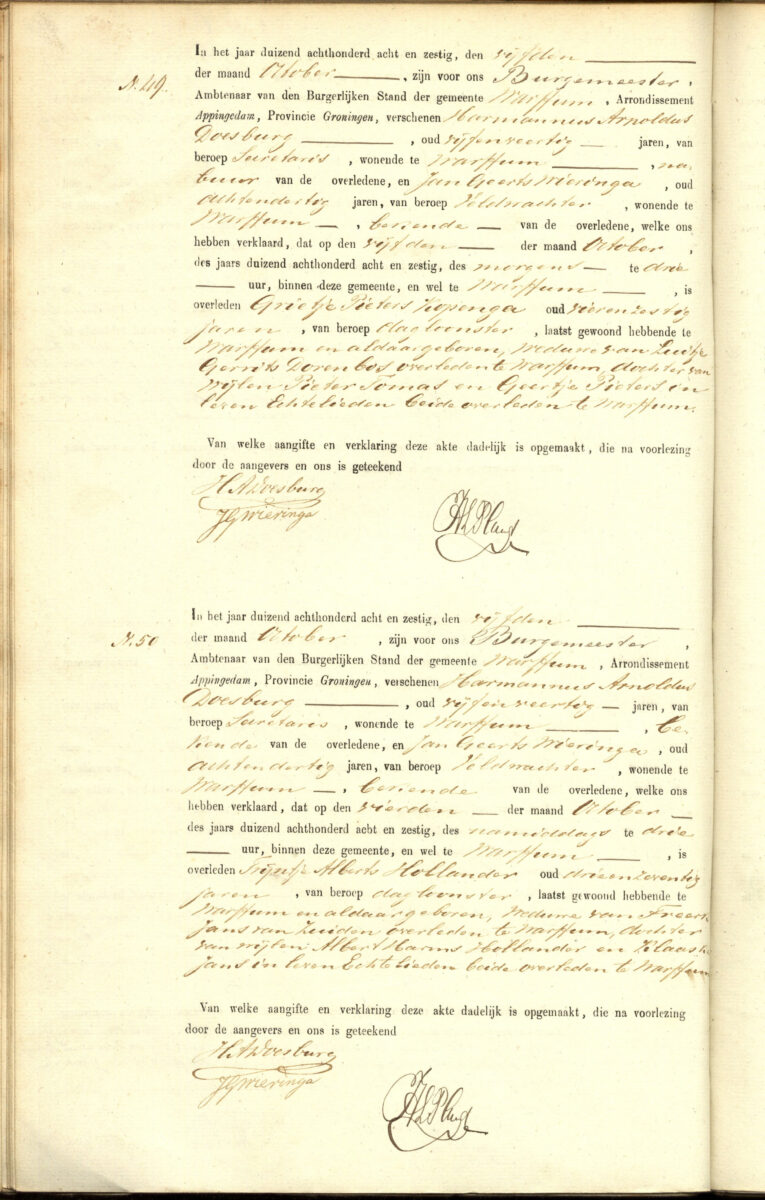 N. 49.
In het jaar duizend achthonderd acht en zestig, den vijfden
der maand October, zijn voor ons Burgemeester,
Ambtenaar van den Burgerlijken Stand der gemeente Warffum, Arrondissement
Appingedam, Provincie Groningen, verschenen Harmannus Arnoldus
Doesburg, oud vijfenveertig jaren, van
beroep Secretaris, wonende te Warffum, na-
buur van de overledene, en Jan Geerts Wieringa, oud
achtendertig jaren, van beroep Veldwachter, wonende te
Warffum, bekende van de overledene, welke ons
hebben verklaard, dat op den vijfden der maand October,
des jaars duizend achthonderd acht en zestig, des morgens te drie
uur, binnen deze gemeente, en wel te Warffum, is
overleden Grietje Pieters Kopenga oud vierenzestig
jaren, van beroep dagloonster, laatst gewoond hebbende te
Warffum en aldaar geboren, Weduwe van Luitje
Gerrits Dorenbos overleden te Warffum, dochter van
wijlen Pieter Tomas en Geertje Pieters in
leven Echtelieden beide overleden te Warffum.
Van welke aangifte en verklaring deze akte dadelijk is opgemaakt, die na voorlezing
door de aangevers en ons is geteekend
H A Doesburg
J G Wieringa
N. 50
In het jaar duizend achthonderd acht en zestig, den vijfden
der maand October, zijn voor ons Burgemeester,
Ambtenaar van den Burgerlijken Stand der gemeente Warffum, Arrondissement
Appingedam, Provincie Groningen, verschenen Harmannus Arnoldus
Doesburg, oud vijfenveertig jaren, van
beroep Secretaris, wonende te Warffum, be-
kende van de overledene, en Jan Geerts Wieringa, oud
achtendertig jaren, van beroep Veldwachter, wonende te
Warffum, bekende van de overledene, welke ons
hebben verklaard, dat op den vierden der maand October
des jaars duizend achthonderd acht en zestig, des namiddags te drie
uur, binnen deze gemeente, en wel te Warffum, is
overleden Trijntje Alberts Hollander oud drieenzeventig
jaren, van beroep dagloonster, laatst gewoond hebbende te
Warffum en aldaar geboren, Weduwe van Freerk
Jans van Zuiden overleden te Warffum, dochter
van wijlen Albert Harms Hollander en
Jans in leven Echtelieden beide overleden te Warffum
Van welke aangifte en verklaring deze akte dadelijk is opgemaakt, die na voorlezing
door de aangevers en ons is geteekend
H A Doesburg
J G Wieringa